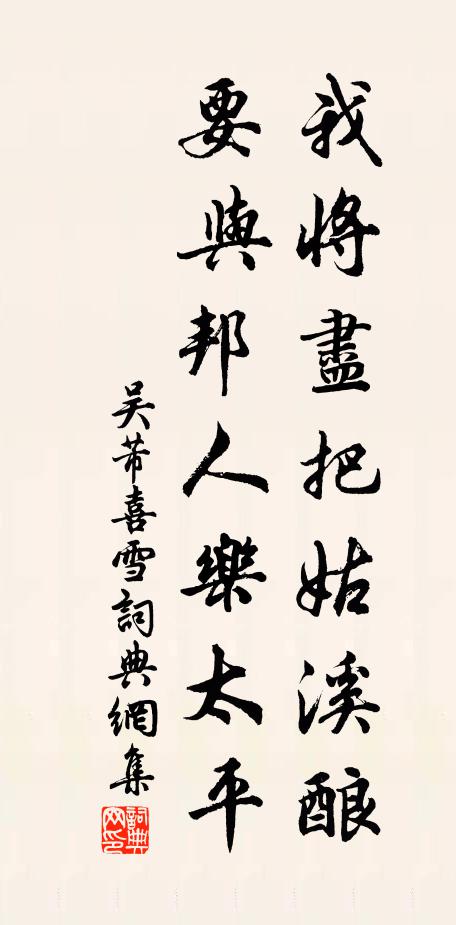 我將盡把姑溪酿
要與邦人樂太平
吴芾喜雪詞典網集
詞典網印